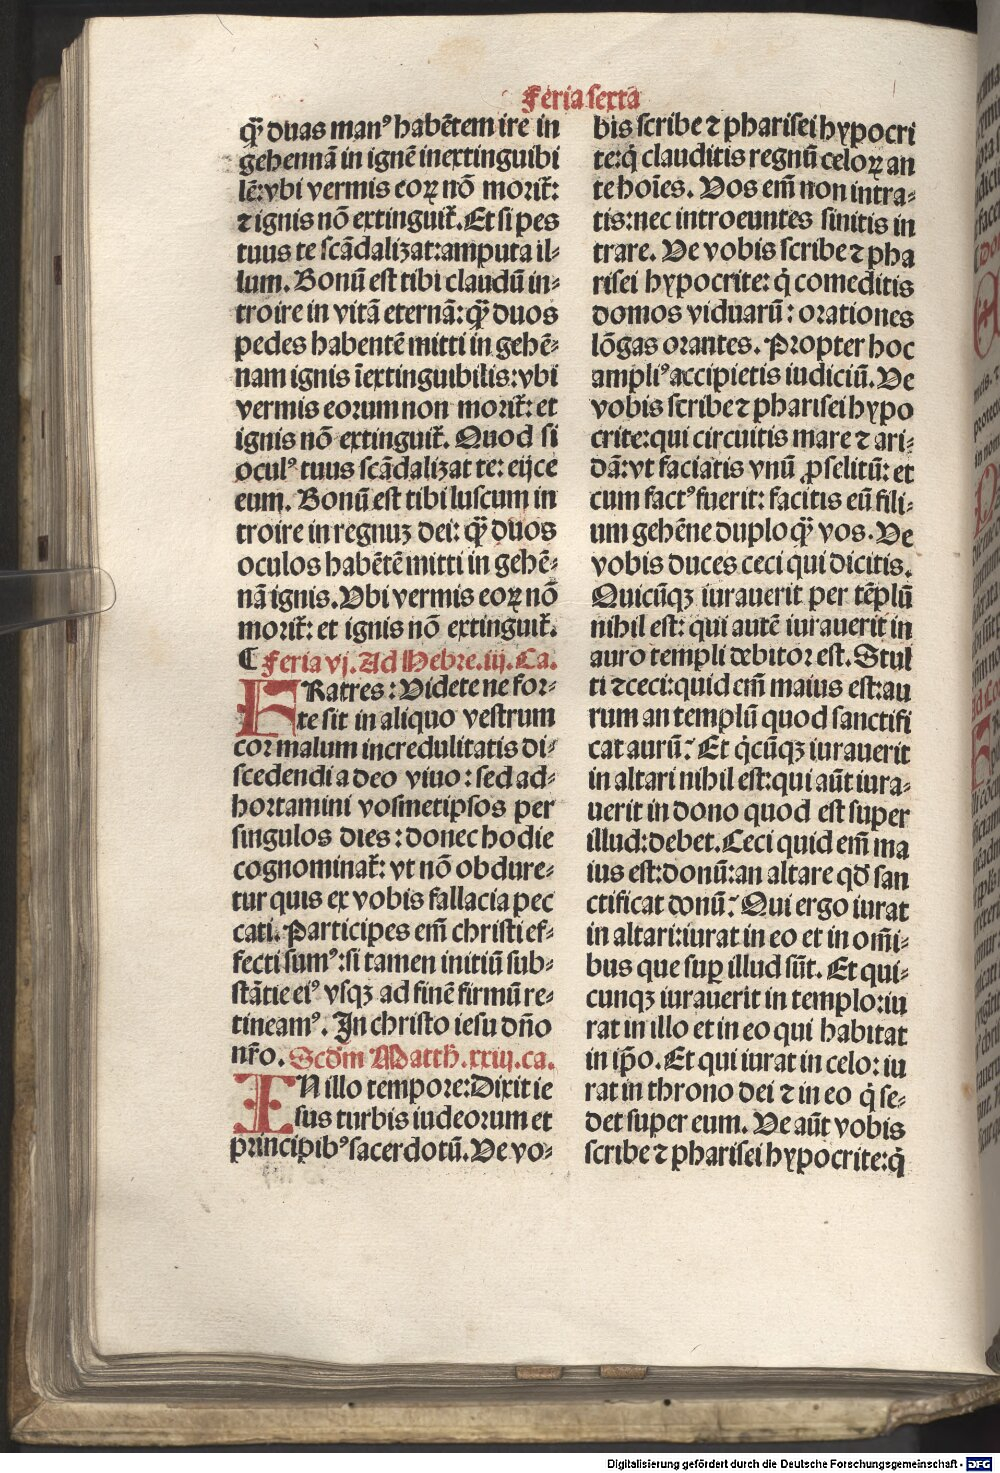 Feria sexta
q̄ꝫ duas manꝰ habētem ire in
gehennā in ignē inextinguibi
lē: vbi vermis eoꝝ nō morit᷑:
⁊ ignis nō extinguit᷑. Et si pes
tuus te scādalizat: amputa il⸗
lum. Bonū est tibi claudū in⸗
troire in vitā eternā: q̄ꝫ duos
pedes habentē mitti in gehē⸗
nam ignis īextinguibilis: vbi
vermis eorum non morit᷑: et
ignis nō extinguit᷑. Quod si
oculꝰ tuus scādalizat te: eijce
eum. Bonū est tibi luscum in
troire in regnuꝫ dei: q̄ꝫ duos
oculos habētē mitti in gehē⸗
nā ignis. Vbi vermis eoꝝ nō
morit᷑: et ignis nō extinguit᷑.
¶ Feria vj. Ad Hebre. iij. Ca.
FRatres: Videte ne for⸗
te sit in aliquo vestrum
cor malum incredulitatis di⸗
scedendi a deo viuo: sed ad⸗
hortamini vosmetipsos per
singulos dies: donec hodie
cognominat᷑: vt nō obdure⸗
tur quis ex vobis fallacia pec
cati. Participes em̄ christi ef⸗
fecti sumꝰ: si tamen initiū sub⸗
stātie eiꝰ vsqꝫ ad finē firmū re⸗
tineamꝰ. In christo iesu dn̄o
nr̄o. Scdm̄ Matth̄. xxiij. ca.
IN illo tempore: Dixit ie
sus turbis iudeorum et
principibꝰ sacerdotū. Ve vo⸗
bis scribe ⁊ pharisei hypocri
te: q̇ clauditis regnū celoꝝ an
te hoīes. Vos em̄ non intra⸗
tis: nec introeuntes sinitis in
trare. Ve vobis scribe ⁊ pha
risei hypocrite: q̇ comeditis
domos viduarū: orationes
lōgas orantes. Propter hoc
ampliꝰ accipietis iudiciū. Ve
vobis scribe ⁊ pharisei hypo
crite: qui circuitis mare ⁊ ari⸗
dā: vt faciatis vnū ꝓselitū: et
cum factꝰ fuerit: facitis eū fili⸗
um gehēne duplo q̄ꝫ vos. Ve
vobis duces ceci qui dicitis.
Quicūqꝫ iurauerit per tēplū
nihil est: qui autē iurauerit in
auro templi debitor est. Stul
ti ⁊ ceci: quid em̄ maius est: au
rum an templū quod sanctifi
cat aurū? Et q̇cūqꝫ iurauerit
in altari nihil est: qui aūt iura⸗
uerit in dono quod est super
illud: debet. Ceci quid em̄ ma
ius est: donū: an altare qd̄ san
ctificat donū? Qui ergo iurat
in altari: iurat in eo et in om̄i⸗
bus que suꝑ illud sūt. Et qui⸗
cunqꝫ iurauerit in templo: iu
rat in illo et in eo qui habitat
in ip̄o. Et qui iurat in celo: iu
rat in throno dei ⁊ in eo q̇ se⸗
det super eum. Ve aūt vobis
scribe ⁊ pharisei hypocrite: q̇
Digitalisierung gefördert durch die Deutsche Forschungsgemeinschaft - DFG